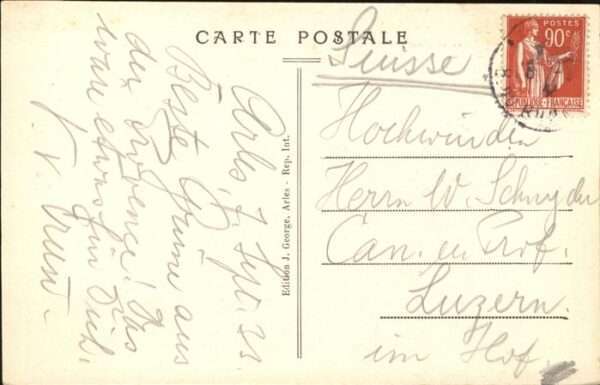 CARTE POSTALE
Arles, 7. Sept. 33.
Beste Grüsse aus
der Provence! Das
wäre etwas für Dich.
Edition J. George, Arles - Rep. Int.
Suisse
Hochwürden
Herrn W. Schnyder
Can. en Prof.
Luzern.
im Hof.
POSTES
90c
REPUBLIQUE FRANÇAISE